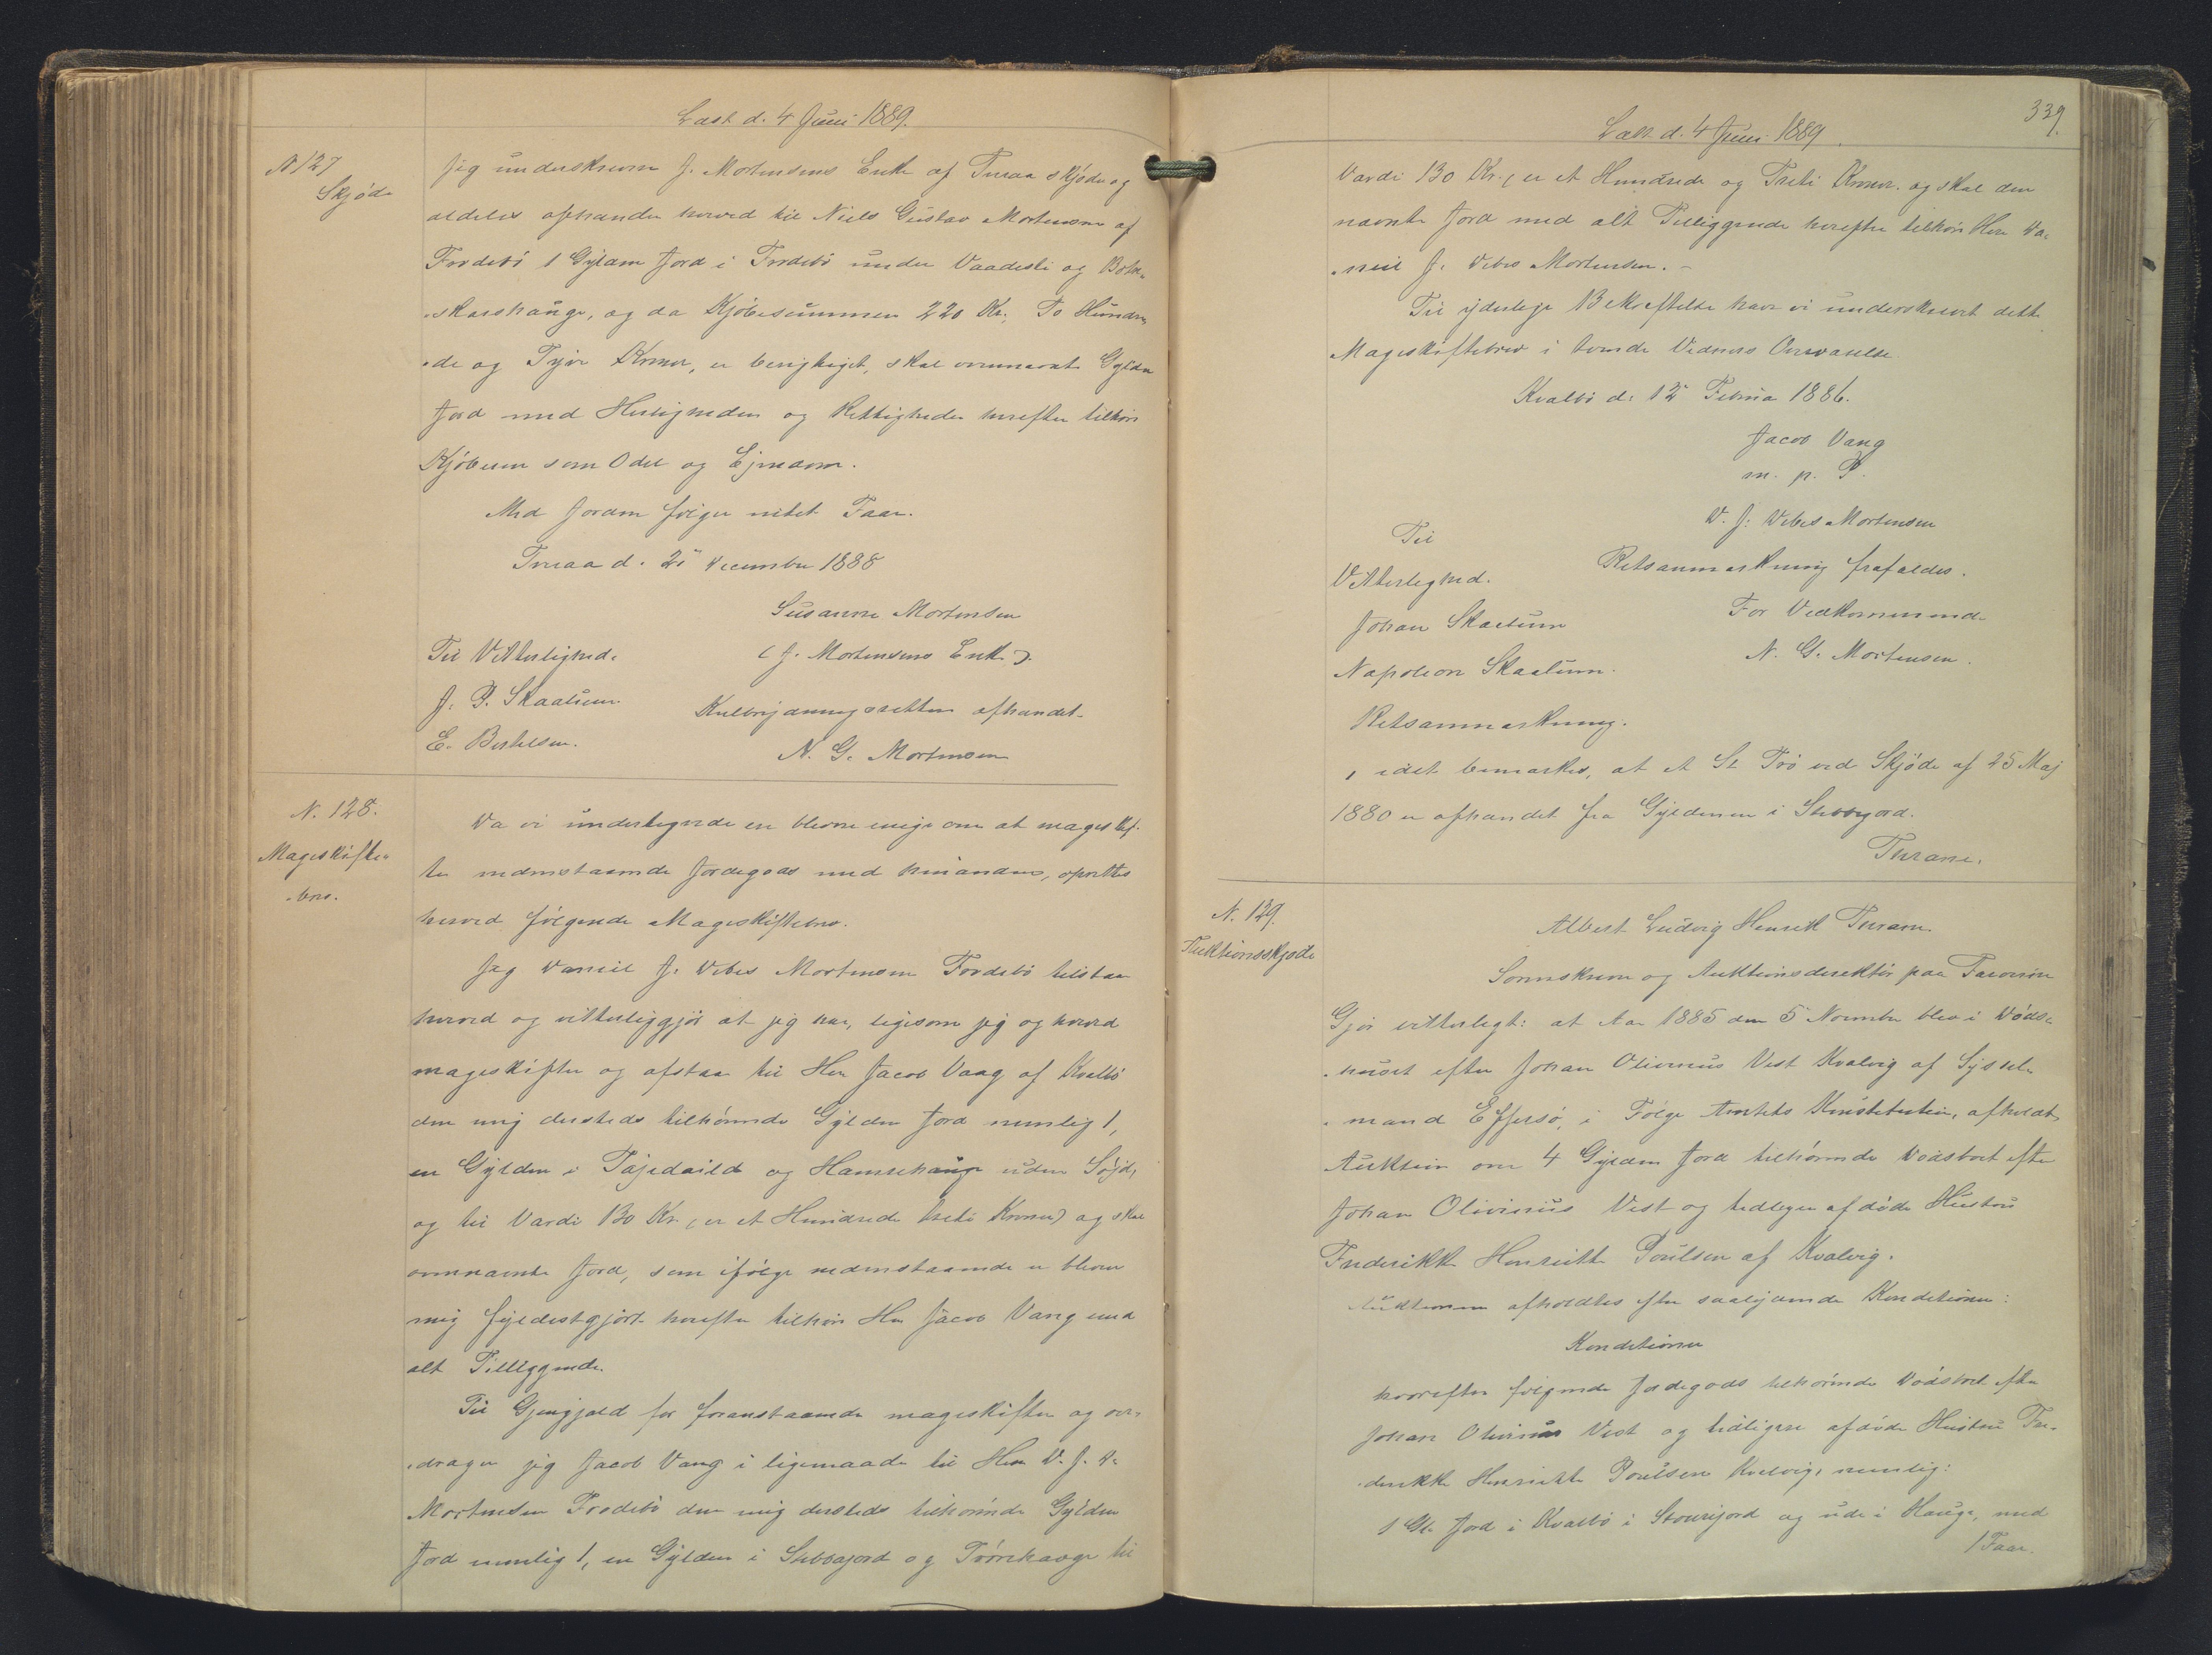 Læst d. 4 Juni 1889.
N. 127
Skjøde
Jeg underskrevne J. Mortensens Enke af Tveraa skjøder og
aldeles afhænder herved til Niels Gustav Mortensen af
Frodebö 1 Gylden Jord i Frodebö under Vaadesli og
skarshauge, og da Kjöbesummen 220 Kr., To Hundre
de og Tyve Kroner, er berigtiget, skal ovennævnte Gylden
Jord med Herligheder og Rettigheder herefter tilhøre
Kjöberen som Odel og Ejendom.
Med Jorden følger intet Faar.
Tveraa d. 21 December 1888
Susanne Mortensen
Til Vitterlighed. (J. Mortensens Enke).
J. P. Skaalum
E. Berthelsen. afhændet
N. G. Mortensen
N. 128.
Mageskifte-
brev.
Da vi undertegnede ere blevne enige om at mageskif-
te nedenstaaende Jordegods med hinanden, oprettes
herved følgende Mageskiftebrev.
Jeg Daniel J. Debes Mortensen Frodebö tilstaar
herved og vitterliggjör at jeg har, ligesom jeg og herved
mageskifter og afstaar til Herr Jacob Vang af Kvalbö
den mig dersteds tilhørende Gylden Jord nemlig 1,
en Gylden i og uden Söjd,
og til Værdi 130 Kr. (er et Hundrede treti Kroner) og skal
ovennævnte Jord, som ifölge nedenstaaende er bleven
mig fyldestgjort herefter tilhøre Hr. Jacob Vang med
alt Tilliggende.
Til Gjengjæld for foranstaaende mageskifter og over-
drager jeg Jacob Vang i ligemaade til Herr D. J. D.
Mortensen Frodebö den mig dersteds tilhörende Gylden
Jord nemlig 1, en Gylden i Stebbajord og Trörehauge til
339.
Læst d. 4 Juni 1889.
Værdi 130 Kr. (er et Hundrede og Treti Kroner. og skal den
nævnte Jord med alt Tilliggende herefter tilhøre Herr Da-
niel J. Debes Mortensen. -
Til yderligere Bekræftelse have vi underskrevet dette
Mageskiftebrev i tvende Vidners Overværelse
Kvalbö d. 12 Februar 1886.
Jacob Vang
m. p. P.
D. J. Debes Mortensen
Til
Vitterlighed. Retsanmærkning frafaldes.
Johan Skaalum For Vedkommende
Napoleon Skaalum. N. G. Mortensen.
Retsanmærkning.
, idet bemærkes, at et St. Trö ved Skjöde af 25 Maj
1880 er afhændet fra Gyldenen i Stebbajord.
Thrane.
N. 129.
Auktionsskjøde
Albert Ludvig Henrik Thrane.
Sorenskriver og Auktionsdirektør paa Færøerne
Gjør vitterligt: at Aar 1885 den 5 November blev i Döds-
huset efter Johan Olivinus Vest Kvalvig af Syssel-
mand Effersö, i Følge Amtets Konstitution, afholdt
Auktion om 4 Gylden Jord tilhørende Dødsboet efter
Johan Olivinus Vest og tidligere afdøde Hustru
Frederikke Henriette Poulsen af Kvalvig.
Auktionen afholdtes efter saalydende Konditioner:
Konditioner
hvorefter følgende Jordegods tilhørende Dødsboet efter
Johan Olivinus Vest og tidligere afdøde Hustru Fre-
derikke Henriette Poulsen Kvalvig, nemlig:
1 Gl. Jord i Kvalbö i Stourejord og ude i Hauge, med
1 Faar.